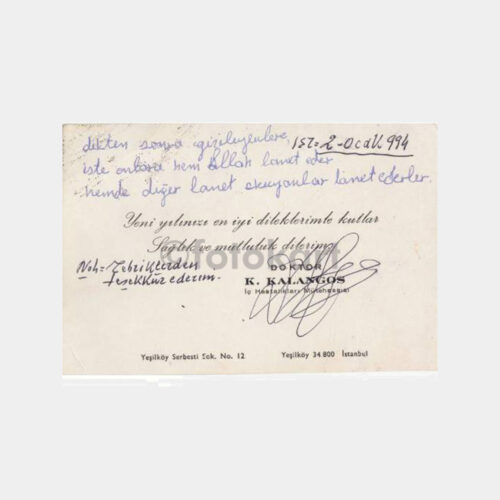 dikten sonra gizileyenlere
İST= 2-Ocak 994
işte onlara hem Allah lanet eder
hemde diğer lanet okuyanlar lanet ederler.
Yeni yılınızı en iyi dileklerimle kutlar
Sağlık ve mutluluk dilerim
©fotokart
Not= Tebriklerden
teşekkür ederim.
DOKTOR
K. KALANGOS
İç Hastalıkları Mütehassısı
Yeşilköy Serbesti Sok. No. 12 Yeşilköy 34.800 İstanbul